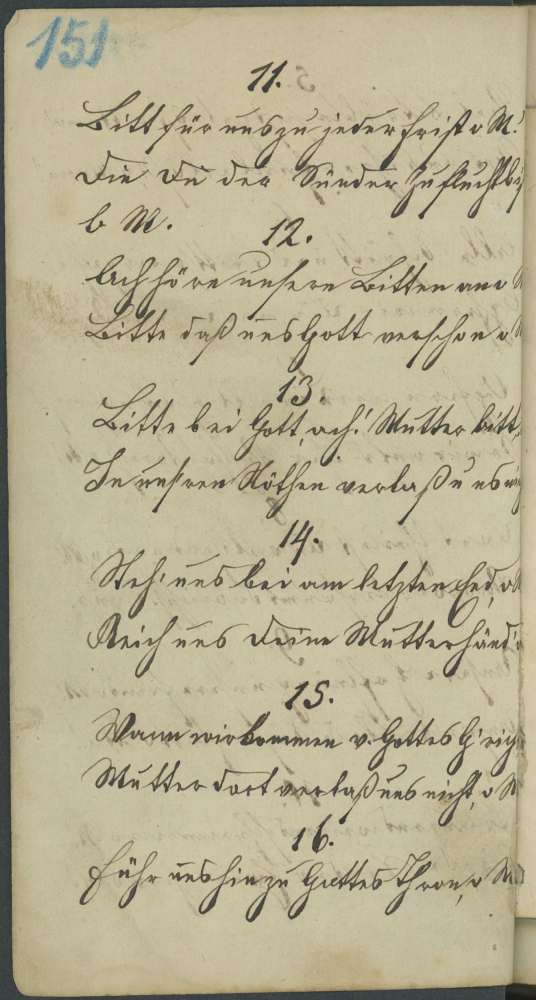 151
11.
Bitt für uns zu jeder Frist o M.
Die Du der Sünder Zuflucht bist
b M.
12.
Ach höre unsere Bitten an o
Bitte daß uns Gott verschon o
13.
Bitte bei Gott, ach! Mutter bitt,
In unsren Nöthen verlaß uns nit
14.
Steh' uns bei am letzten End, o
Reich uns Deine Mutterhänd'
15.
Wann wir kommen v. Gottes G'richt
Mutter dort verlaß uns nicht, o M
16.
Führ uns hin zu Gottes Thron, o M